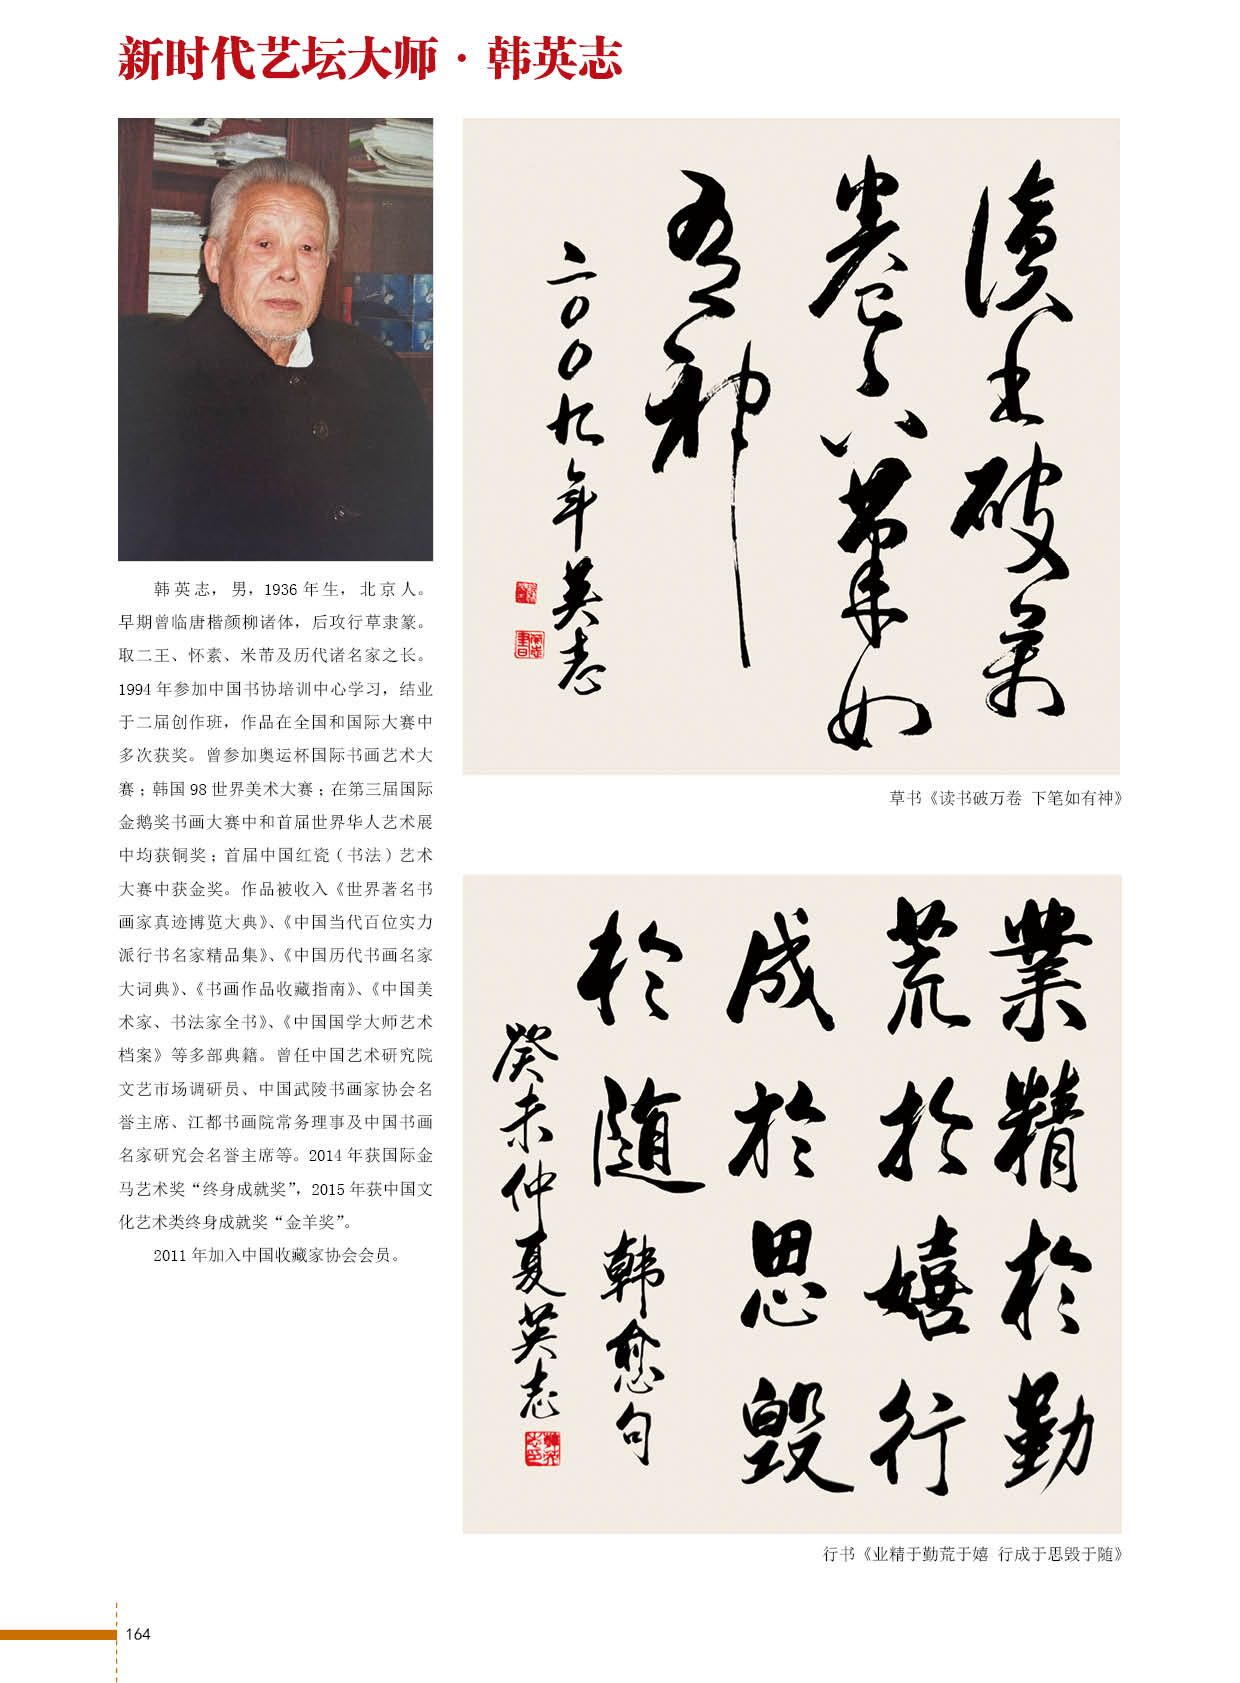 新时代艺坛大师·韩英志
韩英志，男，1936年生，北京人。
早期曾临唐楷颜柳诸体，后攻行草隶篆。
取二王、怀素、米芾及历代诸名家之长。
1994年参加中国书协培训中心学习，结业
于二届创作班，作品在全国和国际大赛中
多次获奖。曾参加奥运杯国际书画艺术大
赛；韩国98世界美术大赛；在第三届国际
金鹅奖书画大赛中和首届世界华人艺术展
中均获铜奖；首届中国红瓷（书法）艺术
大赛中获金奖。作品被收入《世界著名书
画家真迹博览大典》、《中国当代百位实力
派行书名家精品集》、《中国历代书画名家
大词典》、《书画作品收藏指南》、《中国美
术家、书法家全书》、《中国国学大师艺术
档案》等多部典籍。曾任中国艺术研究院
文艺市场调研员、中国武陵书画家协会名
誉主席、江都书画院常务理事及中国书画
名家研究会名誉主席等。2014年获国际金
马艺术奖“终身成就奖”，2015年获中国文
化艺术类终身成就奖“金羊奖”。
2011年加入中国收藏家协会会员。
读书破万
卷下笔如
有神
二〇〇九年英志
草书《读书破万卷 下笔如有神》
業精於勤
荒於嬉行
成於思毁
於随 韩愈句
癸未仲夏英志
行书《业精于勤荒于嬉 行成于思毁于随》
164